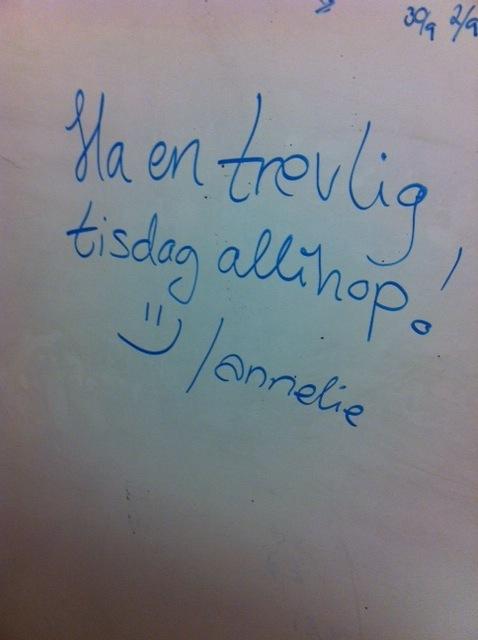 30/9 2/9
Ha en trevlig
tisdag allihop!
=) /annelie